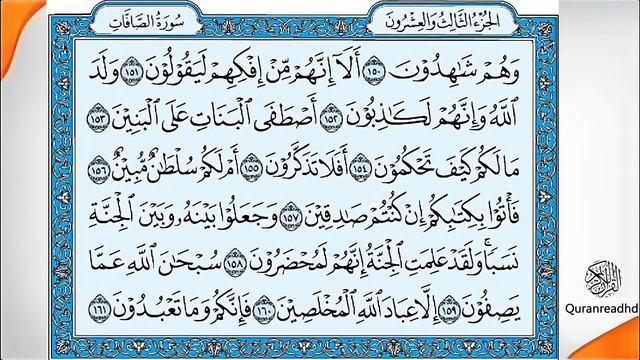 سُورَةُ الصَّافَّاتِ
الجُزْءُ الثَّالِثُ وَالعِشْرُونَ
وَهُمْ شَاهِدُونَ ١٥٠ أَلَا إِنَّهُم مِّنْ إِفْكِهِمْ لَيَقُولُونَ ١٥١ وَلَدَ
اللَّهُ وَإِنَّهُمْ لَكَاذِبُونَ ١٥٢ أَصْطَفَى الْبَنَاتِ عَلَى الْبَنِينَ ١٥٣
مَا لَكُمْ كَيْفَ تَحْكُمُونَ ١٥٤ أَفَلَا تَذَكَّرُونَ ١٥٥ أَمْ لَكُمْ سُلْطَانٌ مُّبِينٌ ١٥٦
فَأْتُوا بِكِتَابِكُمْ إِن كُنتُمْ صَادِقِينَ ١٥٧ وَجَعَلُوا بَيْنَهُ وَبَيْنَ الْجِنَّةِ
نَسَبًا وَلَقَدْ عَلِمَتِ الْجِنَّةُ إِنَّهُمْ لَمُحْضَرُونَ ١٥٨ سُبْحَانَ اللَّهِ عَمَّا
يَصِفُونَ ١٥٩ إِلَّا عِبَادَ اللَّهِ الْمُخْلَصِينَ ١٦٠ فَإِنَّكُمْ وَمَا تَعْبُدُونَ ١٦١
القرآن الكريم
Quranreadhd